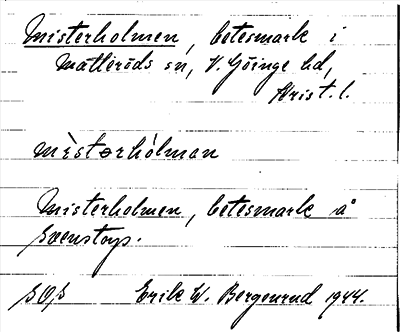 Misterholmen, betesmark i
Matteröds sn, V. Göinge hd,
Krist. l.
mìstərhòlman
Misterholmen, betesmark å
Svenstorp.
SOS Erik W. Bergenrud 1944.